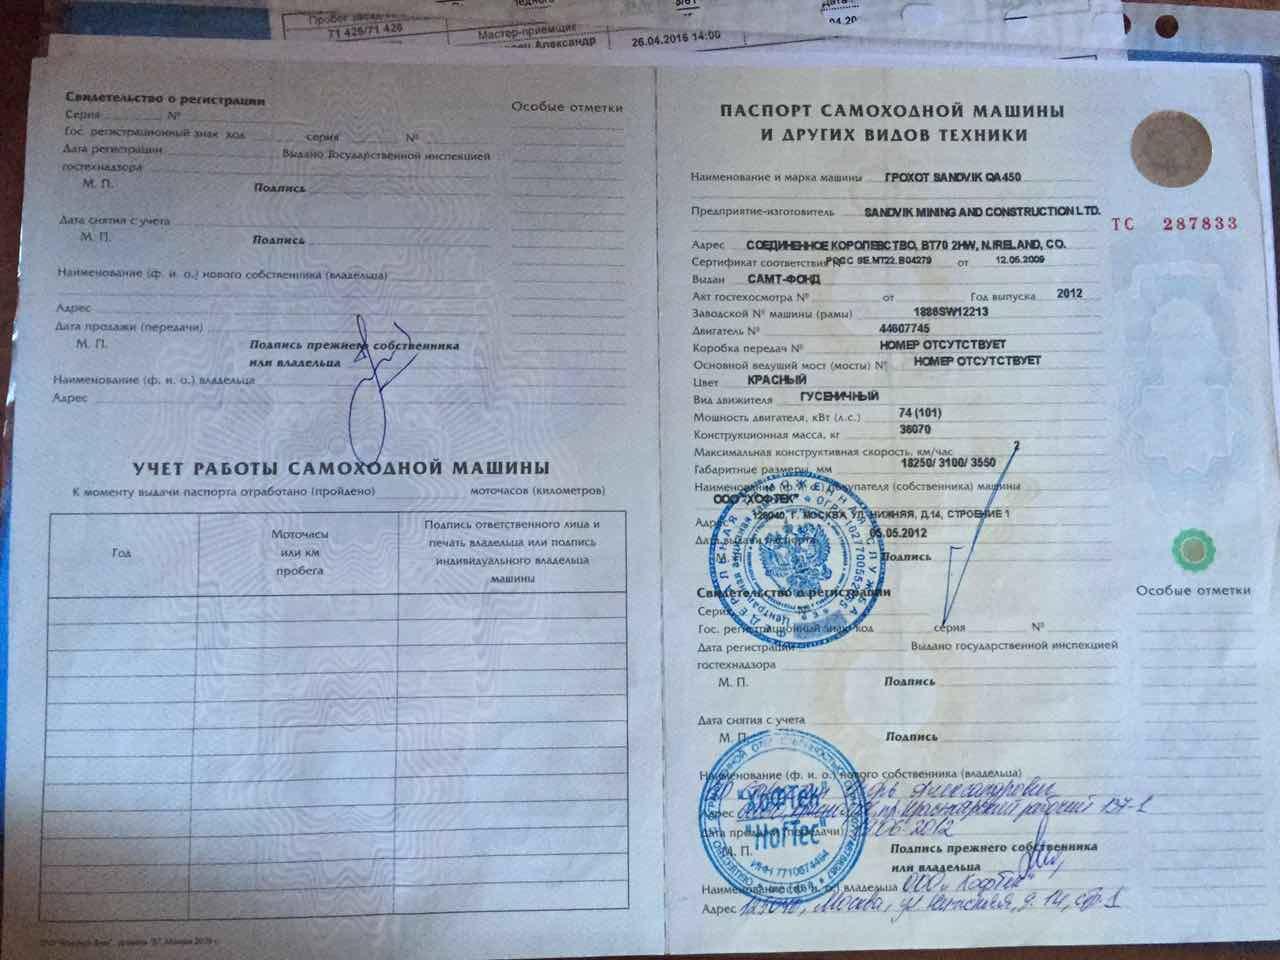 Пробег
71 426/71 426
Мастер-приёмщик
Александр
26.04.2016 14:00
04.20
Свидетельство о регистрации
Особые отметки
Серия №
Гос. регистрационный знак код серия №
Дата регистрации Выдано Государственной инспекцией
гостехнадзора
М. П. Подпись
Дата снятия с учета
М. П. Подпись
Наименование (ф. и. о.) нового собственника (владельца)
Адрес
Дата продажи (передачи)
М. П. Подпись прежнего собственника
или владельца
Наименование (ф. и. о.) владельца
Адрес
УЧЕТ РАБОТЫ САМОХОДНОЙ МАШИНЫ
К моменту выдачи паспорта отработано (пройдено) моточасов (километров)
Год
Моточасы
или км
пробега
Подпись ответственного лица и
печать владельца или подпись
индивидуального владельца
машины
ПАСПОРТ САМОХОДНОЙ МАШИНЫ
И ДРУГИХ ВИДОВ ТЕХНИКИ
Наименование и марка машины ГРОХОТ SANDVIK QA450
Предприятие-изготовитель SANDVIK MINING AND CONSTRUCTION LTD.
ТС 287833
Адрес СОЕДИНЕННОЕ КОРОЛЕВСТВО, BT70 2HW, N.IRELAND, CO.
Сертификат соответствия № РОСС SE.MT22.B04279 от 12.05.2009
Выдан САМТ-ФОНД
Акт гостехосмотра № от Год выпуска 2012
Заводской № машины (рамы) 1886SW12213
Двигатель № 44607745
Коробка передач № НОМЕР ОТСУТСТВУЕТ
Основной ведущий мост (мосты) № НОМЕР ОТСУТСТВУЕТ
Цвет КРАСНЫЙ
Вид движителя ГУСЕНИЧНЫЙ
Мощность двигателя, кВт (л.с.) 74 (101)
Конструкционная масса, кг 36070
Максимальная конструктивная скорость, км/час 2
Габаритные размеры, мм 18250/ 3100/ 3550
Наименование (ф. и. о.) покупателя (собственника) машины
ООО "ХОФТЕК"
Адрес 125040, Г. МОСКВА, УЛ. НИЖНЯЯ, Д.14, СТРОЕНИЕ 1
Дата выдачи паспорта 05.05.2012
М. П. Подпись
Особые отметки
Свидетельство о регистрации
Серия
Гос. регистрационный знак код серия №
Дата регистрации Выдано государственной инспекцией
гостехнадзора
М. П. Подпись
Дата снятия с учета
М. П. Подпись
Наименование (ф. и. о.) нового собственника (владельца)
Александрович
Адрес пр. Красноярский рабочий 137-1
Дата продажи (передачи) 06.2012
М. П. Подпись прежнего собственника
или владельца
Наименование (ф. и. о.) владельца ООО "Хофтек"
Адрес 125040, Москва, ул. Нижняя, д. 14, стр. 1
ФЕДЕРАЛЬНАЯ ТАМОЖЕННАЯ СЛУЖБА
"ХОФТЕК"
"HofTec"